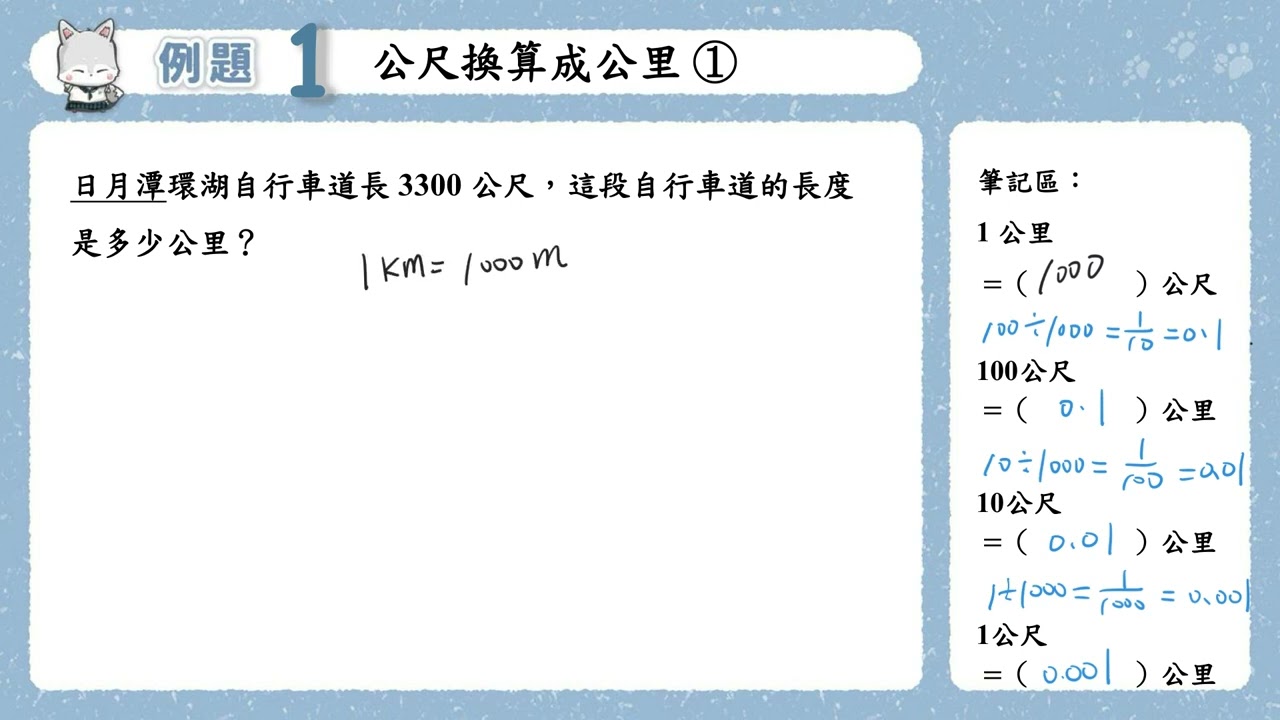 例題 1 公尺換算成公里 ①
日月潭環湖自行車道長 3300 公尺，這段自行車道的長度
是多少公里？
1 KM = 1000 m
筆記區：
1 公里
＝（ 1000 ）公尺
100÷1000 = 1/10 = 0.1
100公尺
＝（ 0.1 ）公里
10÷1000 = 1/100 = 0.01
10公尺
＝（ 0.01 ）公里
1÷1000 = 1/1000 = 0.001
1公尺
＝（ 0.001 ）公里